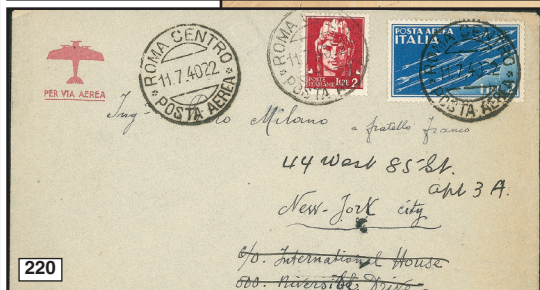 ROMA CENTRO
11.7.40 22
* POSTA AEREA *
ROMA
11.7
POSTA
POSTE ITALIANE LIRE 2
POSTA AEREA
ITALIA
CENTRO
7.40 22
POSTA AEREA
PER VIA AEREA
Ing. Milano a fratello Franco
44 West 85 St.
apt 3 A.
New-York city
c/o International House
500 Riverside Drive
220